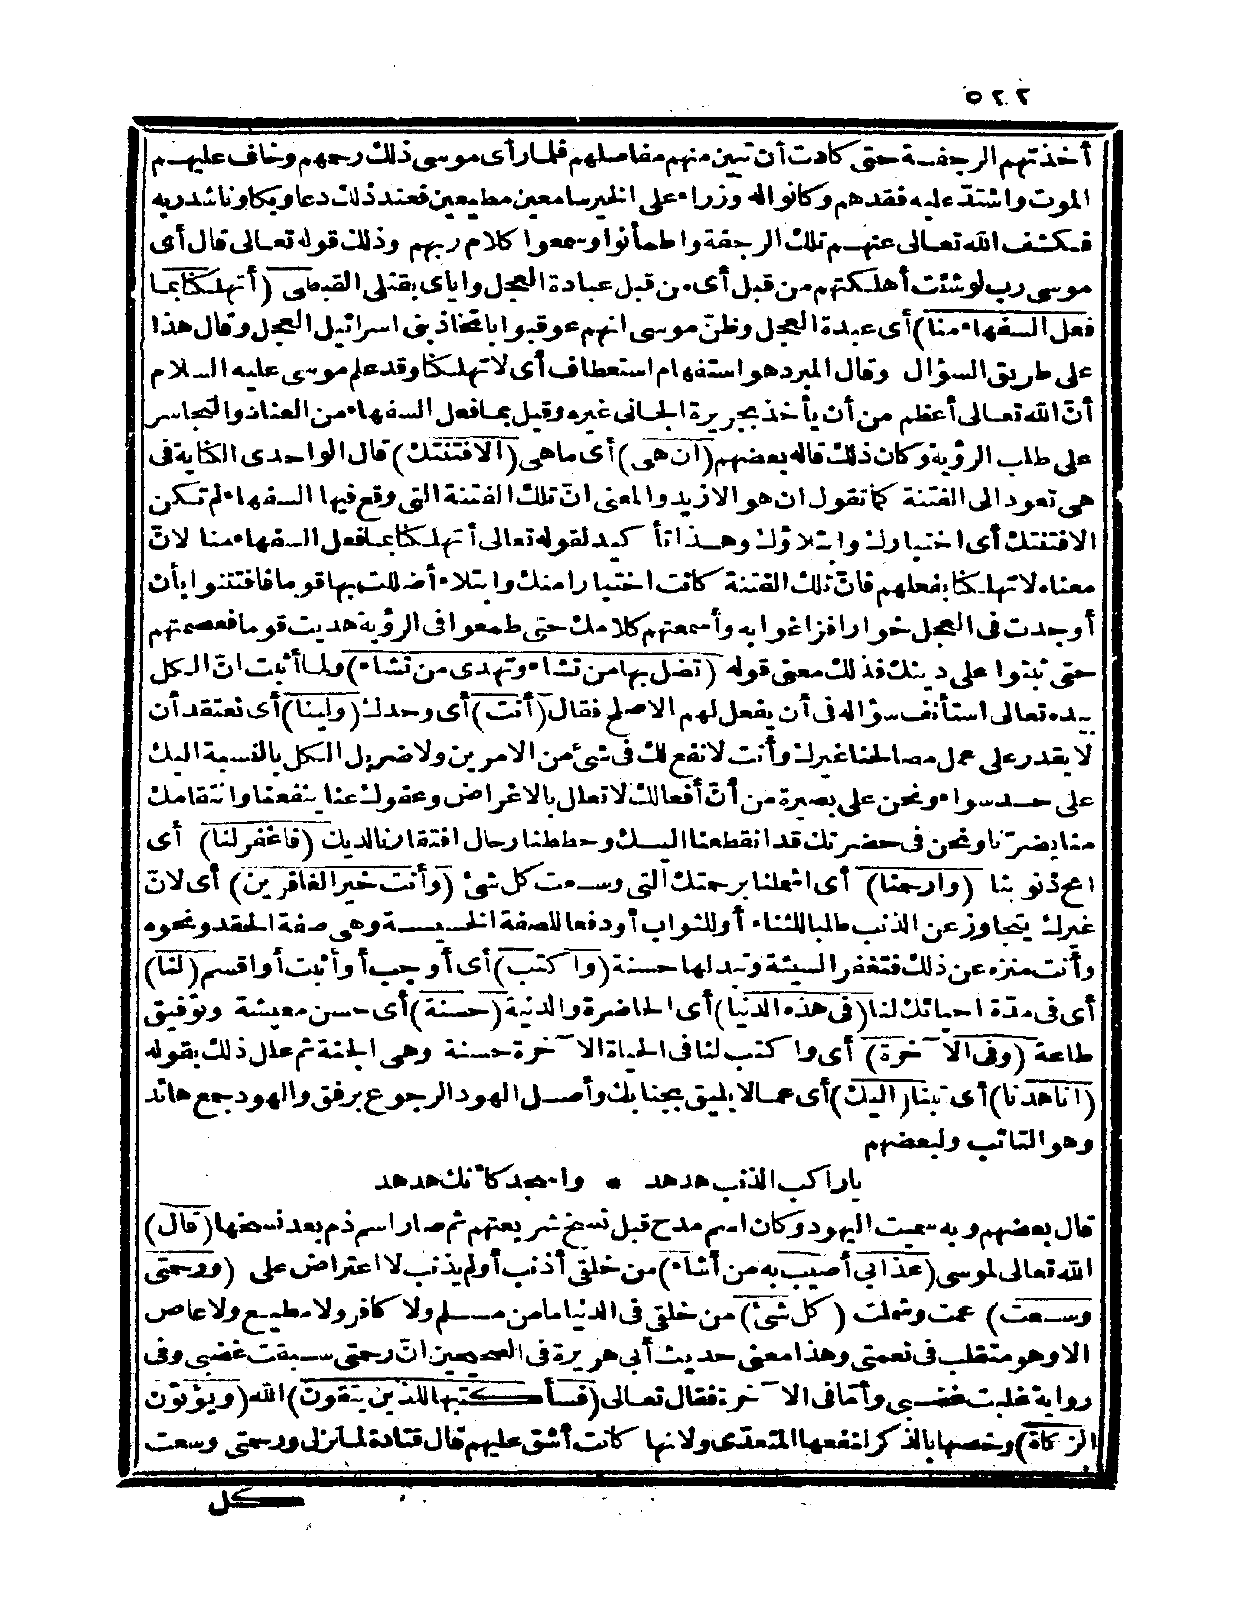 ٥٢٢
أخذتهم الرجفة حتى كادت أن تبين منهم مفاصلهم فلما رأى موسى ذلك رحمهم وخاف عليهم
الموت واشتدّ عليه فقدهم وكانوا له وزراء على الخير سامعين مطيعين فعند ذلك دعا وبكا وناشد ربه
فكشف الله تعالى عنهم تلك الرجفة واطمأنوا وسمعوا كلام ربهم وذلك قوله تعالى قال أى
موسى رب لو شئت أهلكتهم من قبل أى من قبل عبادة العجل واياى بقتلى القبطى (أتهلكنا بما
فعل السفهاء منا) أى عبدة العجل وظنّ موسى انهم عوقبوا باتخاذ بنى اسرائيل العجل وقال هذا
على طريق السؤال وقال المبرد هو استفهام استعطاف أى لا تهلكنا وقد علم موسى عليه السلام
أنّ الله تعالى أعظم من أن يأخذ بجريرة الجانى غيره وقيل بما فعل السفهاء من العناد والتجاسر
على طلب الرؤية وكان ذلك قاله بعضهم (ان هى) أى ما هى (الا فتنتك) قال الواحدى الكناية فى
هى تعود الى الفتنة كما تقول ان هو الا زيد والمعنى انّ تلك الفتنة التى وقع فيها السفهاء لم تكن
الا فتنتك أى اختبارك وابتلاؤك وهذا تأكيد لقوله تعالى أتهلكنا بما فعل السفهاء منا لانّ
معناه لا تهلكنا بفعلهم فانّ تلك الفتنة كانت اختبارا منك وابتلاء أضللت بها قوما فافتتنوا بأن
أوجدت فى العجل خوارا فزاغوا به وأسمعتهم كلامك حتى طمعوا فى الرؤية هديت قوما فعصمتهم
حتى ثبتوا على دينك فذلك معنى قوله (تضل بها من تشاء وتهدى من تشاء) ولما أثبت انّ الكل
بيده تعالى استأنف سؤاله فى أن يفعل لهم الاصلح فقال (أنت) أى وحدك (ولينا) أى نعتقد أن
لا يقدر على عمل مصالحنا غيرك وأنت لا نفع لك فى شئ من الامرين ولا ضر بل الكل بالنسبة اليك
على حد سواء ونحن على بصيرة من أنّ أفعالك لا تعلل بالاغراض وعفوك عنا ينفعنا وانتقامك
منا يضرّنا ونحن فى حضرتك قد انقطعنا اليك وحططنا رحال افتقارنا لديك (فاغفر لنا) أى
امح ذنوبنا (وارحمنا) أى اشملنا برحمتك التى وسعت كل شئ (وأنت خير الغافرين) أى لانّ
غيرك يتجاوز عن الذنب طلبا للثناء أو للثواب أو دفعا للصفة الخسيسة وهى صفة الحقد ونحوه
وأنت منزه عن ذلك فتغفر السيئة وتبدلها حسنة (واكتب) أى أوجب أو أثبت أو اقسم (لنا)
أى فى مدّة احيائك لنا (فى هذه الدنيا) أى الحاضرة والدنية (حسنة) أى حسن معيشة وتوفيق
طاعة (وفى الآخرة) أى واكتب لنا فى الحياة الآخرة حسنة وهى الجنة ثم علل ذلك بقوله
(انا هدنا) أى تبنا (اليك) أى عما لا يليق بجنابك وأصل الهود الرجوع برفق والهود جمع هائد
وهو التائب ولبعضهم
يا راكب الذنب هدهد * واسجد كأنك هدهد
قال بعضهم وبه سميت اليهود وكان اسم مدح قبل نسخ شريعتهم ثم صار اسم ذم بعد نسخها (قال)
الله تعالى لموسى (عذابى أصيب به من أشاء) من خلقى أذنب أو لم يذنب لا اعتراض على (ورحمتى
وسعت) عمت وشملت (كل شئ) من خلقى فى الدنيا ما من مسلم ولا كافر ولا مطيع ولا عاص
الا وهو متقلب فى نعمتى وهذا معنى حديث أبى هريرة فى الصحيحين انّ رحمتى سبقت غضبى وفى
رواية غلبت غضبى وأمّا فى الآخرة فقال تعالى (فسأكتبها للذين يتقون) الله (ويؤتون
الزكاة) وخصها بالذكر لنفعها المتعدّى ولانها كانت أشق عليهم قال قتادة لما نزل ورحمتى وسعت
كل